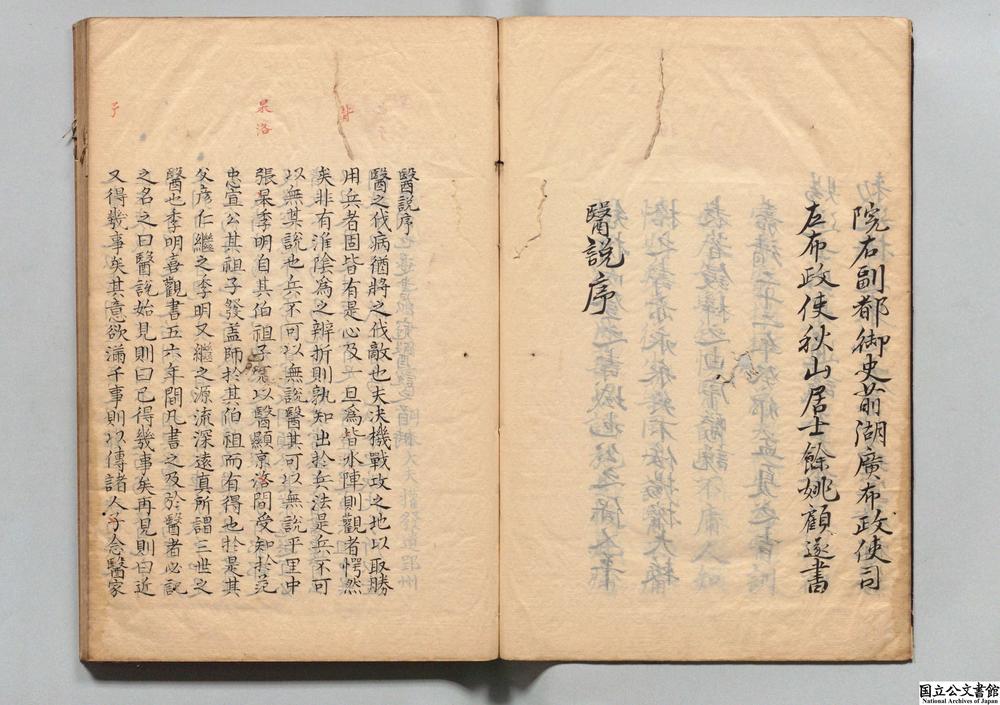 院右副都御史前湖廣布政使司
左布政使秋山居士餘姚顧遂書
醫説序
醫説序
醫之伐病猶將之伐敵也夫决機戰攻之地以取勝
用兵者固皆有是心及一旦為背水陣則觀者愕然
矣非有淮陰為之辨折則孰知出於兵法是兵不可
以無其説也兵不可以無説醫其可以無説乎里中
張杲季明自其伯祖子充以醫顯京洛間受知於范
忠宣公其祖子發盖師於其伯祖而有得也於是其
父彦仁繼之季明又繼之源流深遠真所謂三世之
醫也季明喜觀書五六年間凡書之及於醫者必記
之名之曰醫説始見則曰已得幾事矣再見則曰近
又得幾事矣其意欲滿千事則以傳諸人予念醫家
背
杲
洛
予
国立公文書館
National Archives of Japan